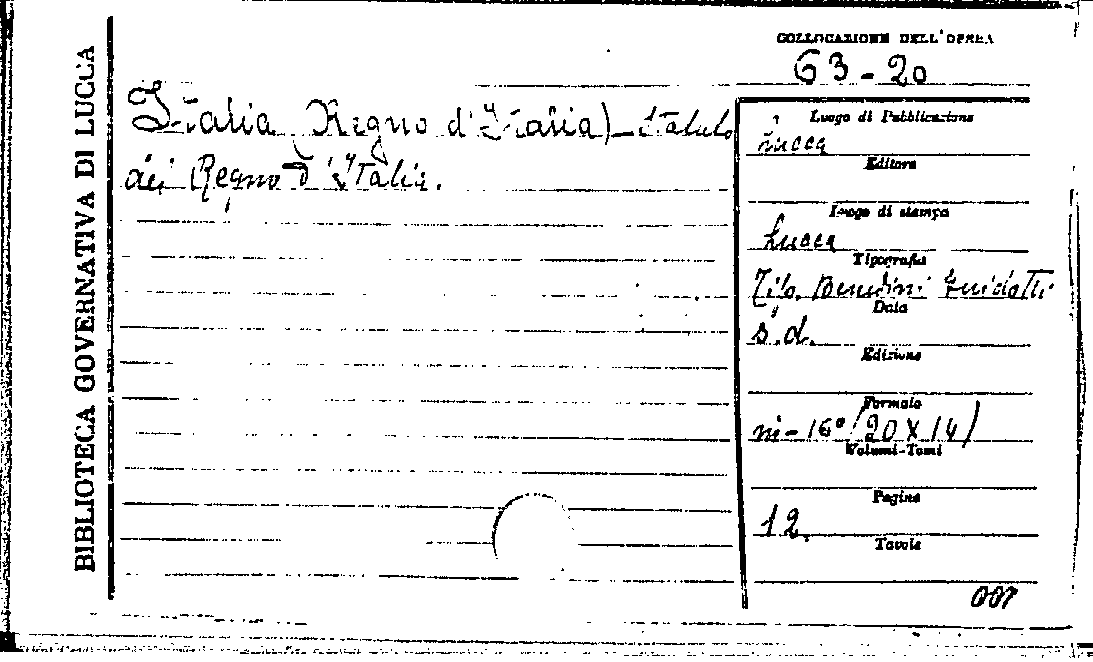 BIBLIOTECA GOVERNATIVA DI LUCCA
COLLOCAZIONE DELL'OPERA
63-20
Italia (Regno d'Italia) - Statuto
del Regno d'Italia.
Luogo di Pubblicazione
Lucca
Editore
Luogo di stampa
Lucca
Tipografia
Tip. Benedini Guidotti
Data
s.d.
Edizione
Formato
in-16° (20 x 14)
Volumi-Tomi
Pagine
12.
Tavole
007